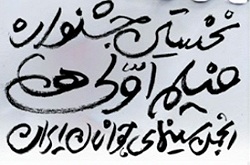 نخستین جشنواره
فیلم اوّلی ها
انجمن سینمای جوانان ایران